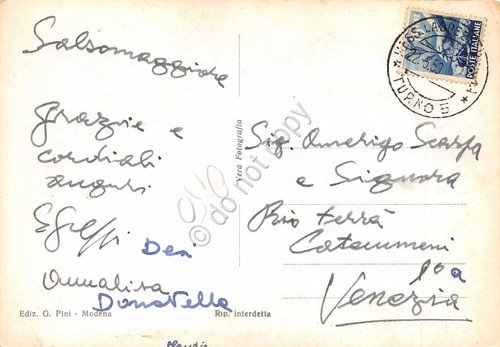 Salsomaggiore
Grazie e
cordiali
auguri
Desi
Annalisa
Donatella
Claudio
Ediz. G. Pini - Modena
Rip. interdetta
Vera Fotografia
© do not copy
POSTE ITALIANE
TURNO 5
Sig. Amerigo Scarpa
e Signora
Rio terrà
Catecumeni
Venezia